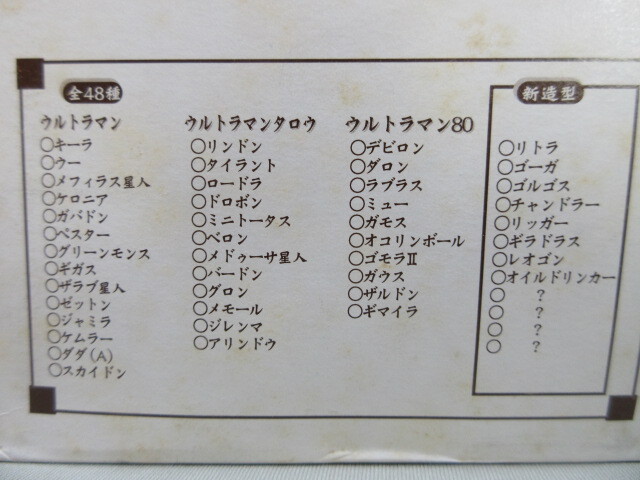 全48種
ウルトラマン
○キーラ
○ウー
○メフィラス星人
○ケロニア
○ガバドン
○ペスター
○グリーンモンス
○ギガス
○ザラブ星人
○ゼットン
○ジャミラ
○ケムラー
○ダダ(A)
○スカイドン
ウルトラマンタロウ
○リンドン
○タイラント
○ロードラ
○ドロボン
○ミニトータス
○ベロン
○メドゥーサ星人
○バードン
○グロン
○メモール
○ジレンマ
○アリンドウ
ウルトラマン80
○デビロン
○ダロン
○ラブラス
○ミュー
○ガモス
○オコリンボール
○ゴモラⅡ
○ガウス
○ザルドン
○ギマイラ
新造型
○リトラ
○ゴーガ
○ゴルゴス
○チャンドラー
○リッガー
○ギラドラス
○レオゴン
○オイルドリンカー
○ ?
○ ?
○ ?
○ ?